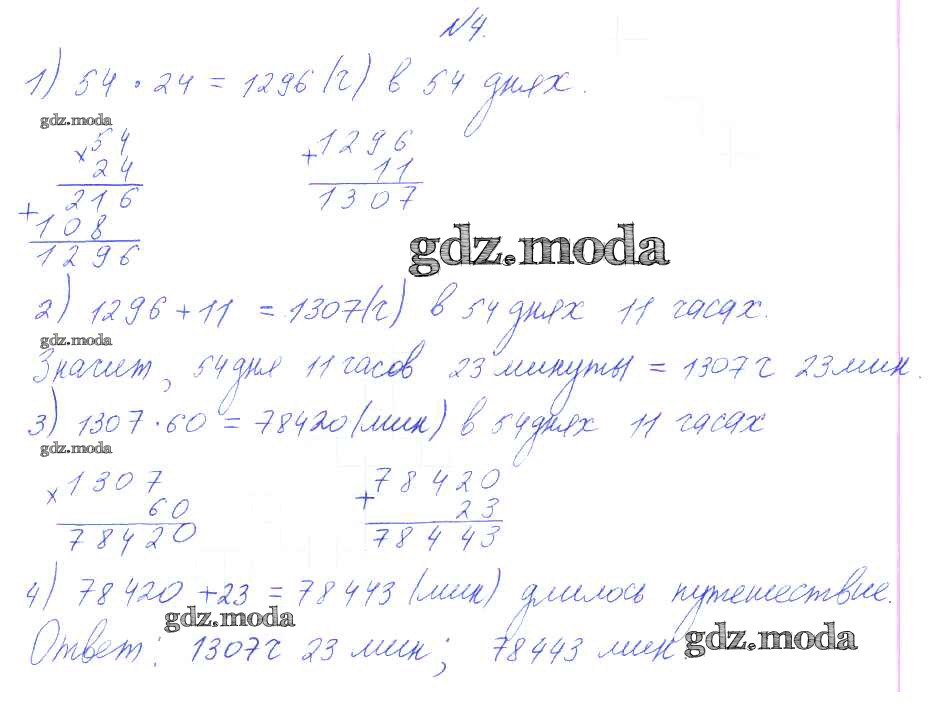 №4.
1) 54 · 24 = 1296 (ч) в 54 днях.
gdz.moda
× 54
24
+ 216
108
1296
+ 1296
11
1307
gdz.moda
2) 1296 + 11 = 1307 (ч) в 54 днях 11 часах.
gdz.moda
Значит, 54 дня 11 часов 23 минуты = 1307 ч 23 мин.
3) 1307 · 60 = 78420 (мин) в 54 днях 11 часах
gdz.moda
× 1307
60
78420
+ 78420
23
78443
4) 78420 + 23 = 78443 (мин) длилось путешествие.
gdz.moda
Ответ: 1307 ч 23 мин; 78443 мин.
gdz.moda